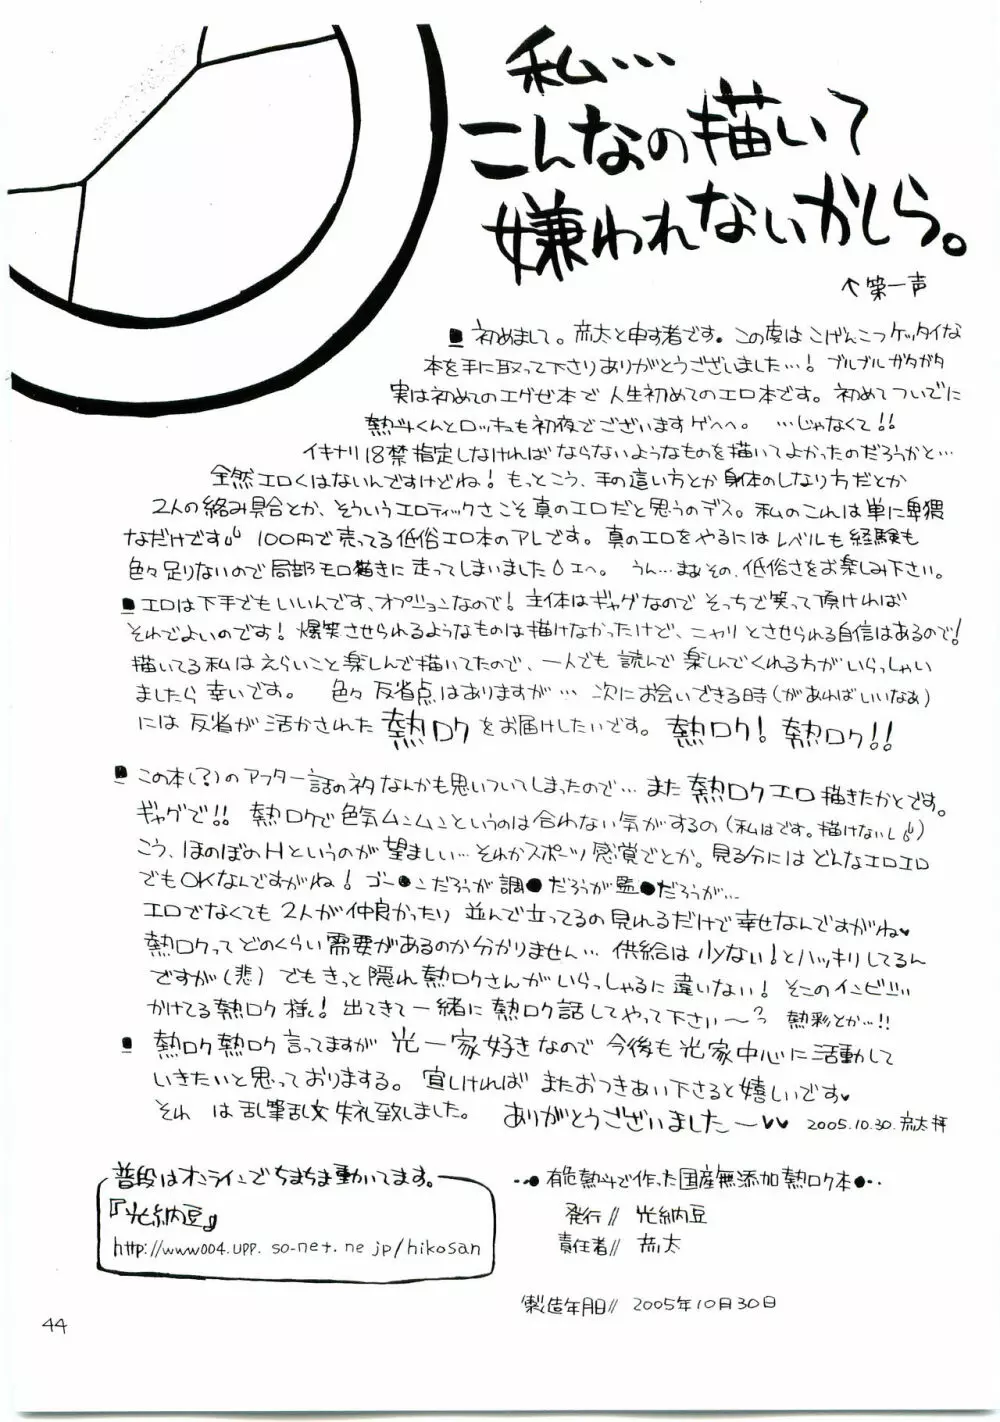 私…
こんなの描いて
嫌われないかしら。
↑第一声
■ 初めまして。彦太と申す者です。この度はこげんこつケッタイな
本を手に取って下さりありがとうございました…! ブルブル ガタガタ
実は初めてのエグゼ本で人生初めてのエロ本です。初めてついでに
熱斗くんとロッキュも初夜でございますゲヘヘ。 …じゃなくて!!
イキナリ18禁指定しなければならないようなものを描いてよかったのだろうかと…
全然エロくはないんですけどね! もっとこう、手の這い方とか身体のしなり方だとか
2人の絡み具合とか、そういうエロティックさこそ真のエロだと思うのデス。私のこれは単に卑猥
なだけです 100円で売ってる低俗エロ本のアレです。真のエロをやるにはレベルも経験も
色々足りないので局部モロ描きに走ってしまいました エヘ。 うん…まぁその、低俗さをお楽しみ下さい。
■ エロは下手でもいいんです、オプションなので! 主体はギャグなのでそっちで笑って頂ければ
それでよいのです! 爆笑させられるようなものは描けなかったけど、ニヤリとさせられる自信はあるので!
描いてる私はえらいこと楽しんで描いてたので、一人でも読んで楽しんでくれる方がいらっしゃい
ましたら幸いです。 色々反省点はありますが… 次にお会いできる時(があればいいなぁ)
には反省が活かされた熱ロクをお届けしたいです。 熱ロク! 熱ロク!!
■ この本(?)のアフター話のネタなんかも思いついてしまったので… また熱ロクエロ描きたかとです。
ギャグで!! 熱ロクで色気ムンムンというのは合わない気がするの(私はです。描けないし)
こう、ほのぼのHというのが望ましい… それかスポーツ感覚でとか。見る分にはどんなエロエロ
でもOKなんですがね! ゴー●ンだろうが調●だろうが監●だろうが…
エロでなくても2人が仲良かったり並んで立ってるの見れるだけで幸せなんですがね♥
熱ロクってどのくらい需要があるのか分かりません… 供給は少ない!とハッキリしてるん
ですが(悲) でもきっと隠れ熱ロクさんがいらっしゃるに違いない! そこのインビジ
かけてる熱ロク様! 出てきて一緒に熱ロク話してやって下さい〜? 熱彩とか…!!
■ 熱ロク熱ロク言ってますが光一家好きなので今後も光家中心に活動して
いきたいと思っておりまする。宜しければまたおつきあい下さると嬉しいです♥
それでは乱筆乱文失礼致しました。 ありがとうございました〜♥♥ 2005.10.30.彦太拝
普段はオンラインでちまちま動いてます。
『光納豆』
http://www004.upp.so-net.ne.jp/hikosan
‥● 有麁熱斗で作った国産無添加熱ロク本●‥
発行// 光納豆
責任者// 彦太
製造年月日// 2005年10月30日
44